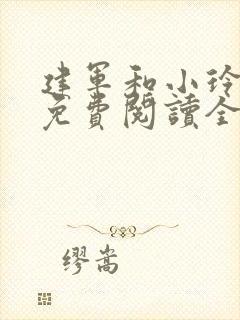 建軍和小玲
免費閱讀全
繆嵩